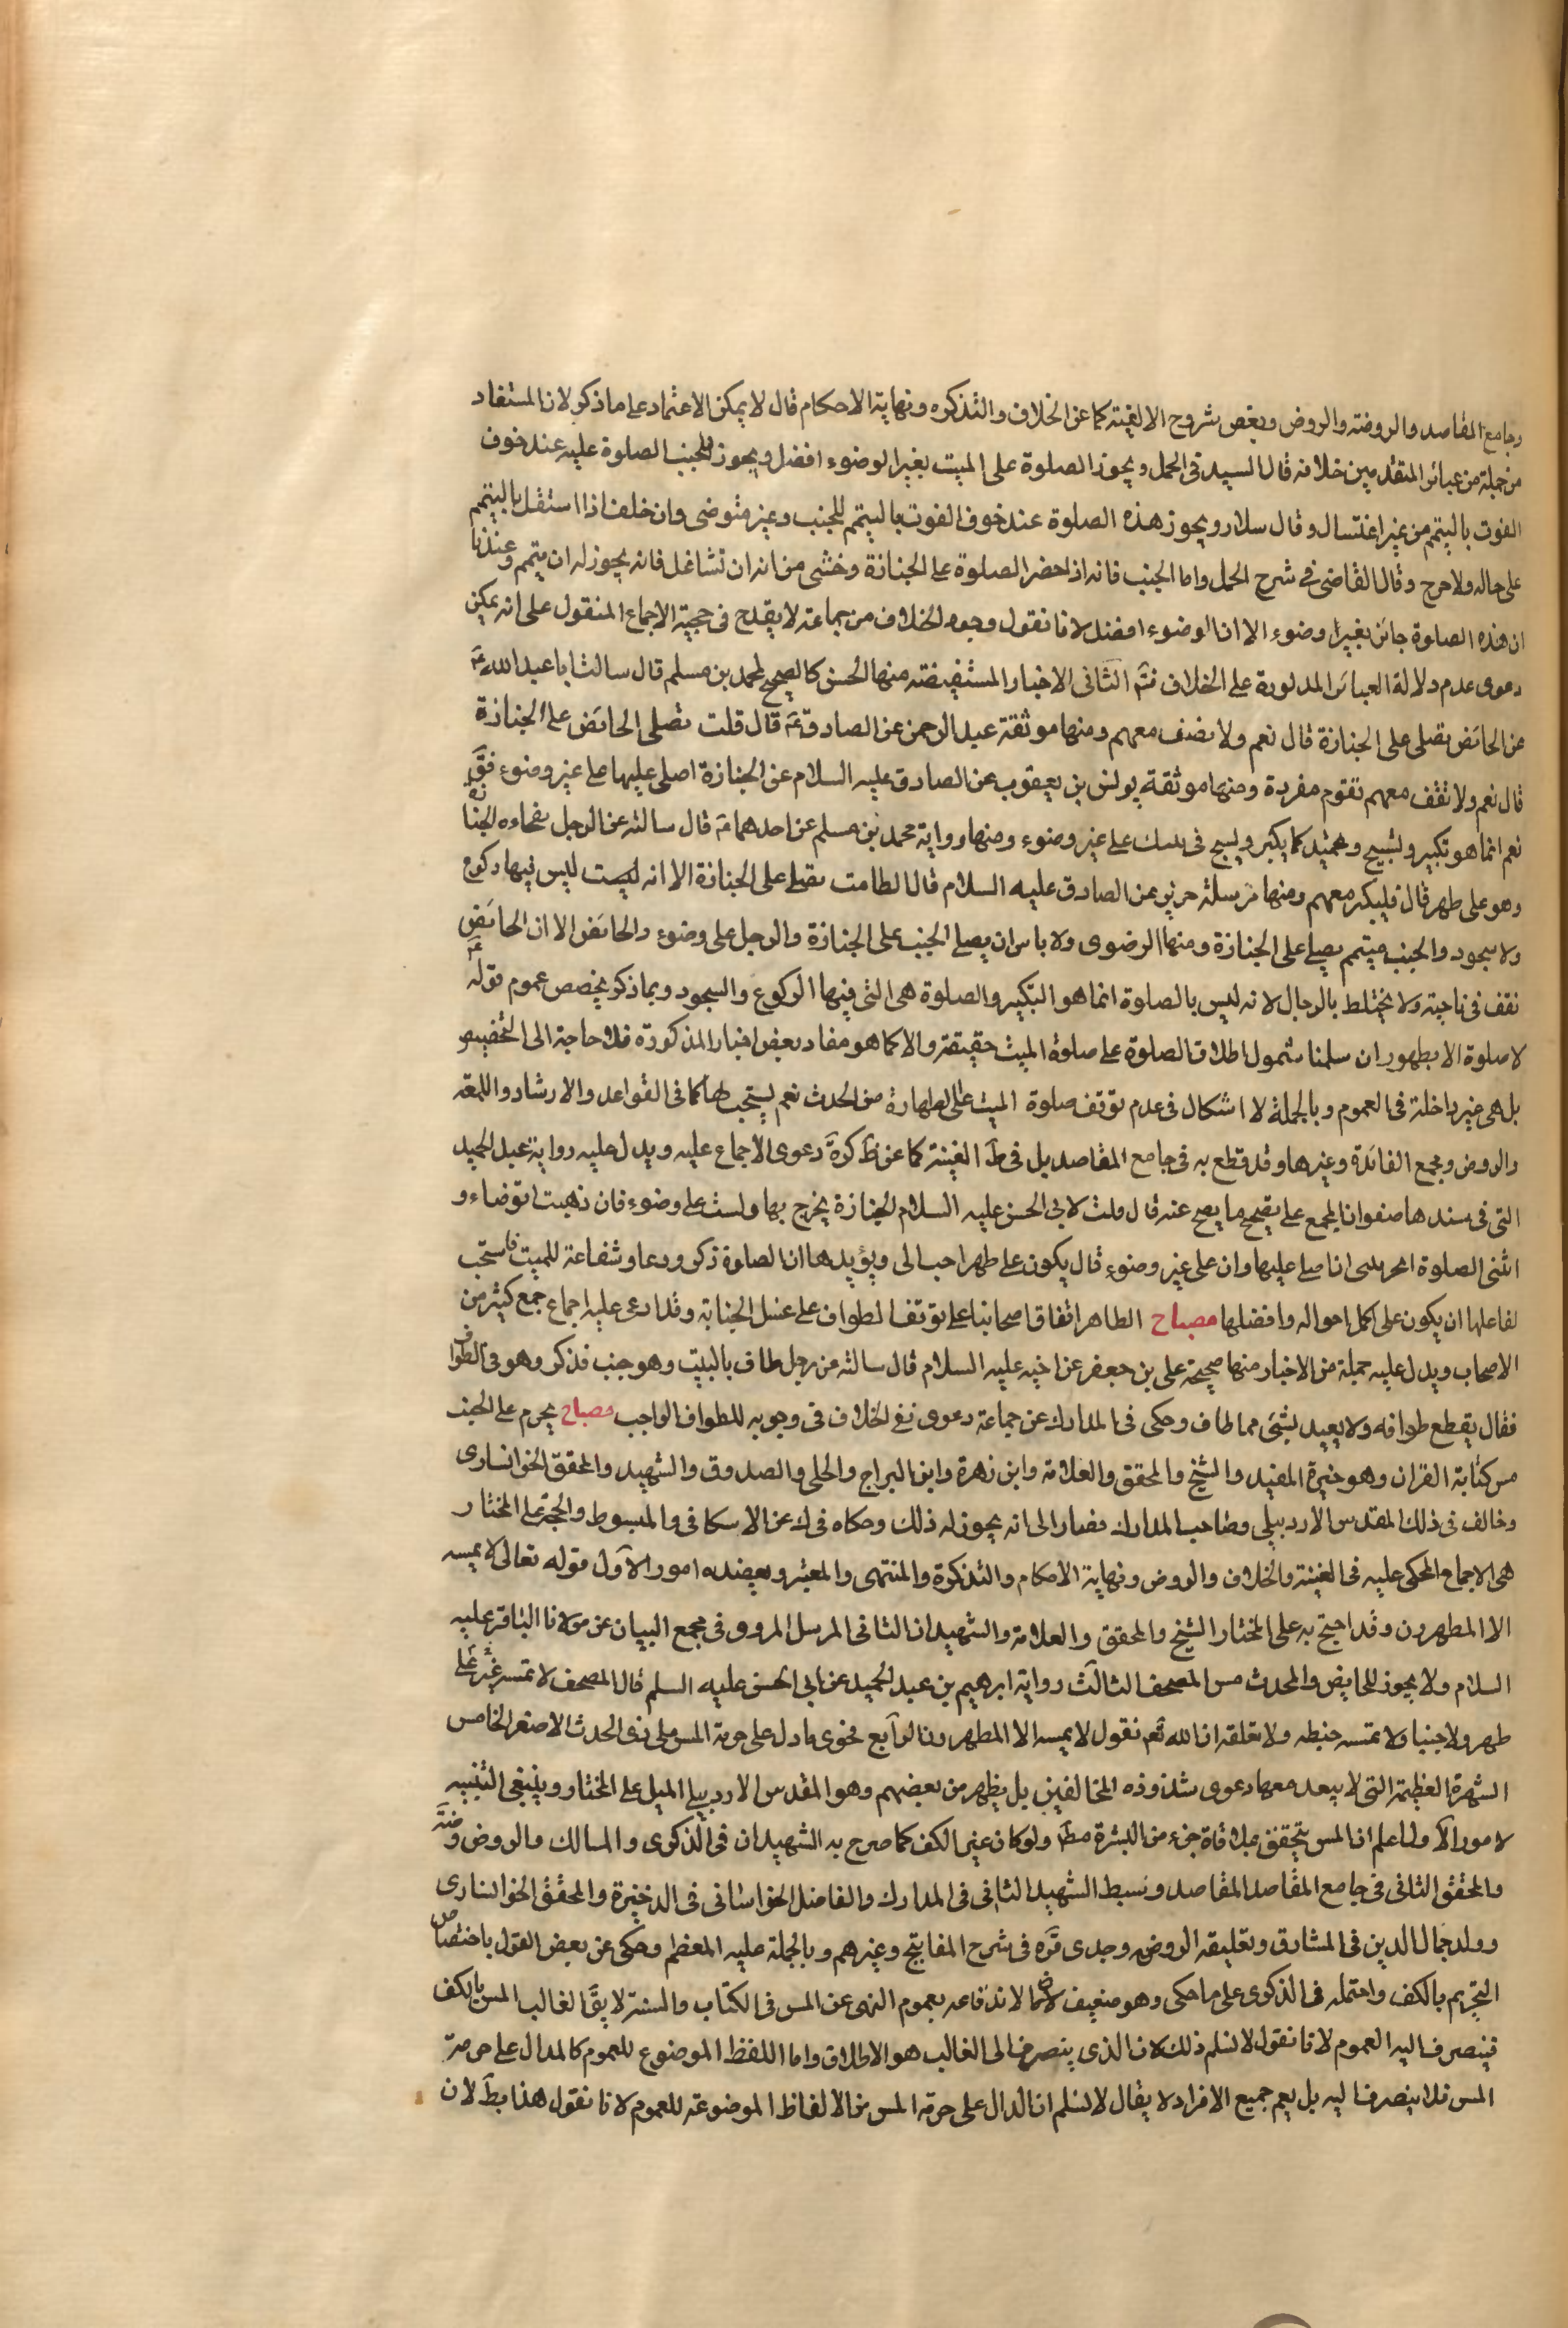 وجامع المقاصد والروضة والروض وبعض شروح الالفية كما عن الخلاف والتذكره ونهاية الاحكام قال لا يمكن الاعتماد على ما ذكر لان المستفاد
من جملة من عبائر المتقدمين خلافه قال السيد في الجمل ويجوز الصلوة على الميت بغير الوضوء افضل ويجوز للجنب الصلوة عليه عند خوف
الفوت بالتيمم من غير اغتسال وقال سلار ويجوز هذه الصلوة عند خوف الفوت بالتيمم للجنب وغير متوضى وان خلف اذا استقل بالتيمم
على حاله ولا حرج وقال القاضى في شرح الجمل واما الجنب فانه اذا حضر الصلوة على الجنازة وخشى من انه ان تشاغل فانه يجوز له ان يتمم وعندنا
ان هذه الصلوة جائز بغير وضوء الا ان الوضوء افضل لانا نقول وجود الخلاف من جماعة لا يقدح في حجية الاجماع المنقول على انه يمكن
دعوى عدم دلالة العبائر المذبورة على الخلاف فتم الثانى الاخبار المستفيضة منها الحسن كالصحيح لمحمد بن مسلم قال سالت ابا عبد الله ع
عن الحائض تصلى على الجنازة قال نعم ولا تضف معهم ومنها موثقة عبد الرحمن عن الصادق ع قال قلت تصلى الحائض على الجنازة
قال نعم ولا تقف معهم تقوم مفردة ومنها موثقة يونس بن يعقوب عن الصادق عليه السلام عن الجنازة اصلى عليها على غير وضوء فق
نعم انما هو تكبير وتسبيح وتحميد كما يكبر ويسبح في بيتك على غير وضوء ومنها رواية محمد بن مسلم عن احدهما ع قال سالته عن الرجل تفجاءه الجنازة
وهو على طهر قال فليكبر معهم ومنها مرسلة حريز عن الصادق عليه السلام قال الطامث تصلى على الجنازة الا انه ليست ليس فيها ركوع
ولا سجود والجنب ميتمم يصلى على الجنازة ومنها الرضوى ولا باس ان يصلى الجنب على الجنازة والرجل على وضوء والحائض الا ان الحائض
تقف في ناحية ولا يختلط بالرجال لانه ليس بالصلوة انما هو التكبير والصلوة هى التى فيها الركوع والسجود وبما ذكر يخصص عموم قوله ع
لا صلوة الا بطهور ان سلمنا شمول اطلاق الصلوة على صلوة الميت حقيقة والا كما هو مفاد بعض اخبار المذكورة فلا حاجة الى التخصيص
بل هى غير داخلة في العموم وبالجملة لا اشكال في عدم توقف صلوة الميت على الطهارة من الحدث نعم يستحب لها كما في القواعد والارشاد واللمعة
والروض ومجمع الفائدة وغيرها وقد قطع به في جامع المقاصد بل في ظ الغنية كما عن ظ كرة دعوى الاجماع عليه ويدل عليه رواية عبد الحميد
التى في سندها صفوان المجمع على تصحيح ما يصح عنه قال قلت لابى الحسن عليه السلام الجنازة يخرج بها ولست على وضوء فان ذهبت اتوضاء و
اتنى الصلوة انا صلى عليها وان على غير وضوء قال يكون على طهر احب الى ويؤيدها ان الصلوة ذكر ودعا وشفاعة للميت فاستحب
لفاعلها ان يكون على اكمل احواله وافضلها مصباح الظاهر اتفاق اصحابنا على توقف الطواف على غسل الجنابة وقد ادعى عليه اجماع جمع كثير من
الاصحاب ويدل عليه جملة من الاخبار منها صحيحة على بن جعفر عن اخيه عليه السلام قال سالته عن رجل طاف بالبيت وهو جنب فذكر وهو في الطواف
فقال يقطع طوافه ولا يعيد بشئ مما طاف وحكى في المدارك عن جماعة دعوى نفى الخلاف في وجوبه للطواف الواجب مصباح يحرم على الجنب
مس كتابة القران وهو خيرة المفيد والشيخ والمحقق والعلامة وابن زهرة وابن البراج والحلى والصدوق والشهيد والمحقق الخوانسارى
وخالف في ذلك المقدس الاردبيلى وصاحب المدارك فصار الى انه يجوز له ذلك وحكاه في ك عن الاسكافى والمبسوط والحجة على المختار
هى الاجماع المحكى عليه في الغنية والخلاف والروض ونهاية الاحكام والتذكرة والمنتهى والمعتبر ويعضده امور الاول قوله تعالى لا يمسه
الا المطهرون وقد احتج به على المختار الشيخ والمحقق والعلامة والشهيدان الثانى المرسل المروى في مجمع البيان عن مولانا الباقر عليه
السلام ولا يجوز للحايض والمحدث مس المصحف الثالث رواية ابرهيم بن عبد الحميد عن ابى الحسن عليه السلم قال المصحف لا تمسه غير على
طهر ولا جنبا ولا تمسه خيطه ولا تعلقه ان الله تعم نقول لا يمسه الا المطهرون الرابع فحوى ما دل على حرمة المس على ذى الحدث الاصغر الخامس
الشهرة العظيمة التى لا يبعد معها دعوى شذوذه المخالفين بل يظهر من بعضهم وهو المقدس الاردبيلى الميل على المختار وينبغى التنبيه
لامور الاول اعلم ان المس يتحقق بملاقاة جزء من البشرة مط ولو كان غير الكف كما صرح به الشهيدان في الذكرى والمسالك والروض وضة
والمحقق الثانى في جامع المقاصد المقاصد وسبط الشهيد الثانى في المدارك والفاضل الخراسانى في الذخيرة والمحقق الخوانسارى
وولد جمال الدين في المشارق وتعليقه الروضه وجدى قره في شرح المفاتيح وغيرهم وبالجملة عليه المعظم وحكى عن بعض القول باختصاص
التحريم بالكف واحتمله في الذكرى على ما حكى وهو ضعيف لاندفاعه بعموم النهى عن المس في الكتاب والسنة لا يق الغالب المس بالكف
فينصرف اليه العموم لانا نقول لا نسلم ذلك لان الذى ينصرف الى الغالب هو الاطلاق واما اللفظ الموضوع للعموم كالدال على حرمة
المس فلا ينصرف اليه بل يعم جميع الافراد لا يقال لا نسلم ان الدال على حرمة المس من الالفاظ الموضوعة للعموم لانا نقول هذا بط لان